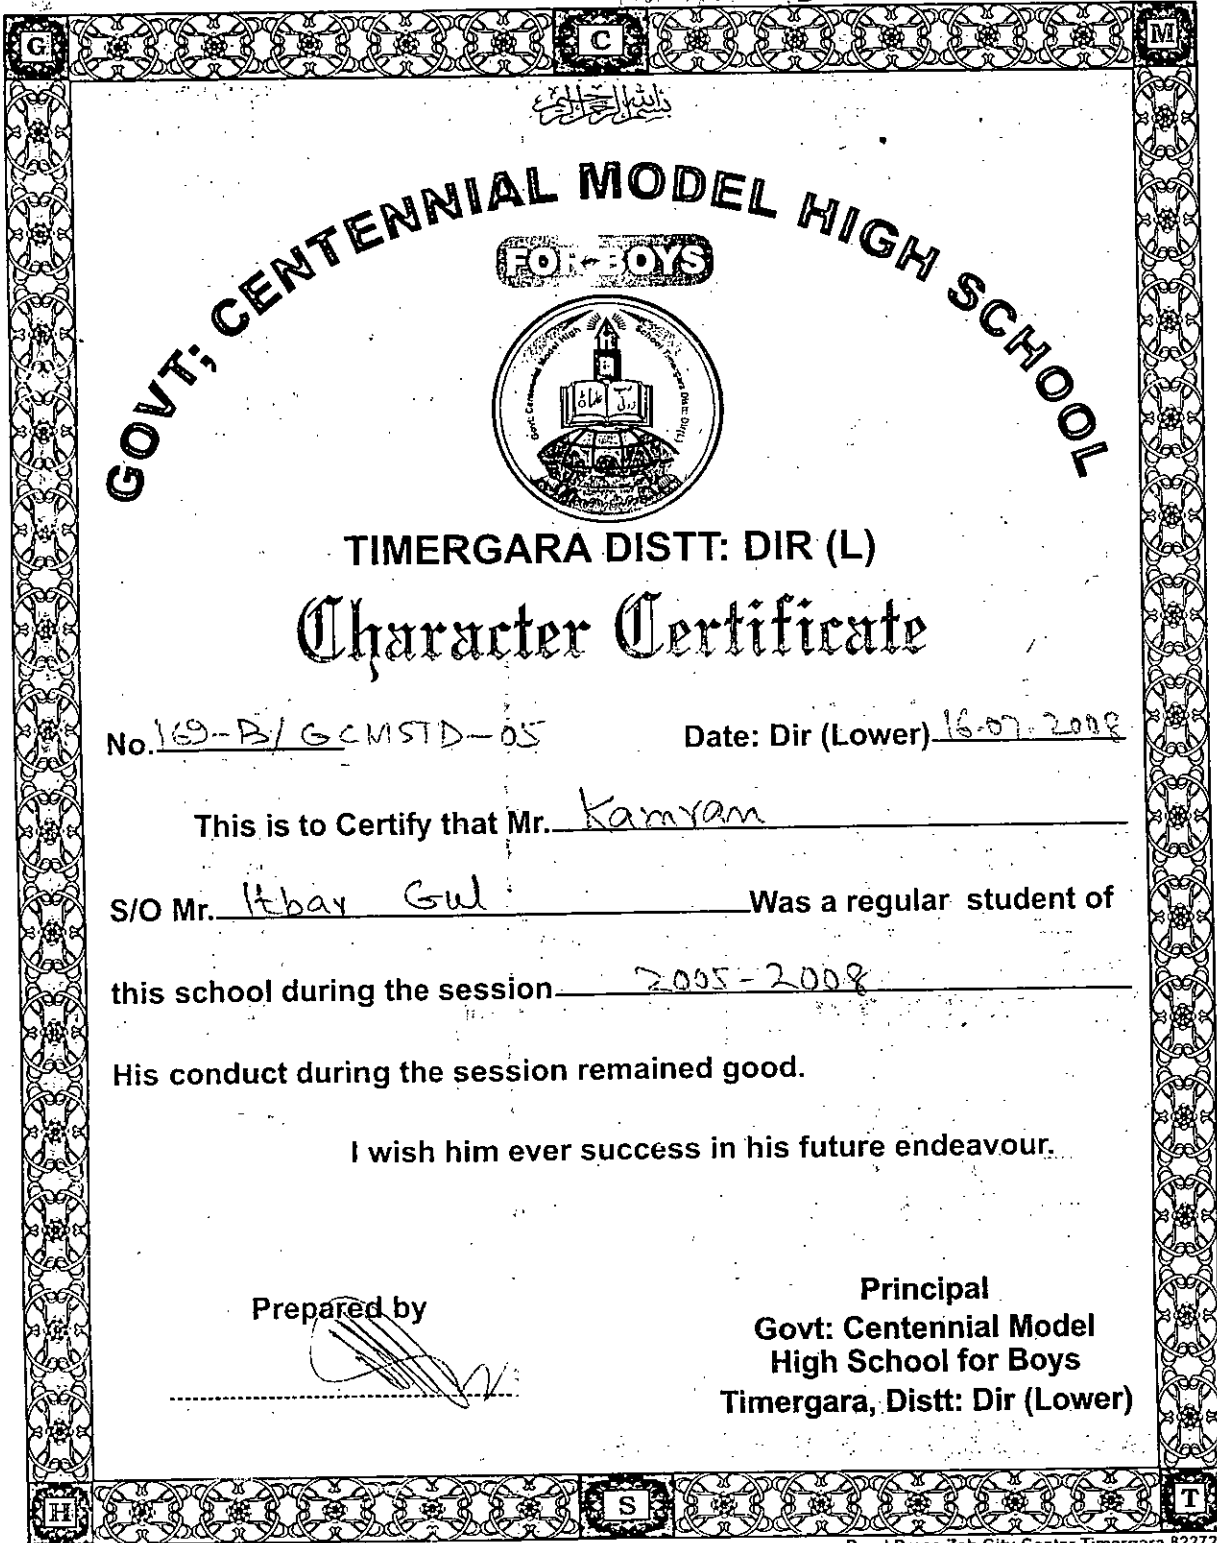 G C M
بسم الله الرحمن الرحيم
GOVT; CENTENNIAL MODEL HIGH SCHOOL
FOR BOYS
Govt: Centennial Model High School Timergara Distt Dir (L)
رب زدنی علما
TIMERGARA DISTT: DIR (L)
Character Certificate
No. 169-B/GCMSTD-05 Date: Dir (Lower) 16-07-2008
This is to Certify that Mr. Kamran
S/O Mr. Itbar Gul Was a regular student of
this school during the session 2005-2008
His conduct during the session remained good.
I wish him ever success in his future endeavour.
Prepared by
Principal
Govt: Centennial Model
High School for Boys
Timergara, Distt: Dir (Lower)
H S T
City Center Timergara